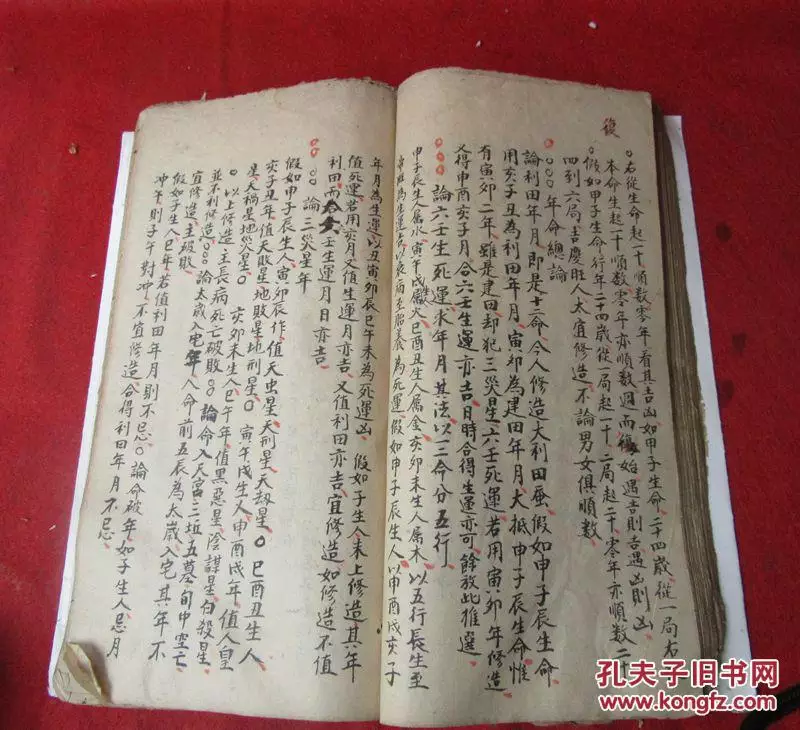 復
右從生命起一十順數零年看其吉凶如甲子生命二十四歲從一局右
本命生起一十順數零年亦順數週而復始遇吉則吉遇凶則凶
假如甲子生命行年二十四歲從一局起一十二局起二十零年亦順數二十
四到六局吉慶旺人大宜修造不論男女俱順數
論年命總論
論利田年月即是十二命今人修造大利田蚕假如申子辰生命惟
用亥子丑為利田年月寅卯為建田年月大抵申子辰生命
有寅卯二年雖是建田却犯三災星六壬死運若用寅卯年修造
又得申酉亥子月合六壬生運亦吉日時合得生運亦可餘放此推選
論六壬生死運求年月其法以三命分五行
申子辰生人属水寅午戌生人属火巳酉丑生人属金亥卯未生人属木以五行長生至
帝旺為生運吉以衰病至胎養為死運假如申子辰生人以申酉戌亥子
年月為生運以丑寅卯辰巳午未為死運凶假如子生人未上修造其年
值死運若用亥月又值生運月亦吉又值利田亦吉宜修造如修造不值
利田而合六壬生運月日亦吉
論三災星年
假如申子辰生人寅卯辰作值天虫星天刑星天劫星巳酉丑生人
亥子丑年值天敗星地敗星地刑星寅午戌生人申酉戌年值人皇
星天禍星地災星亥卯未生人巳午年值黑惡星陰謀星白殺星
以上修造主長病死亡破敗論命入天宮三垣五墓旬中空亡
並不利修造論太歲入宅年八命前五辰為太歲入宅其年不
宜修造主破敗
假如子生人巳年若值利田年月則不忌論命破年如子生人忌月
冲午則子午對冲不宜修造合得利田年月不忌
孔夫子旧书网
kongfz.com